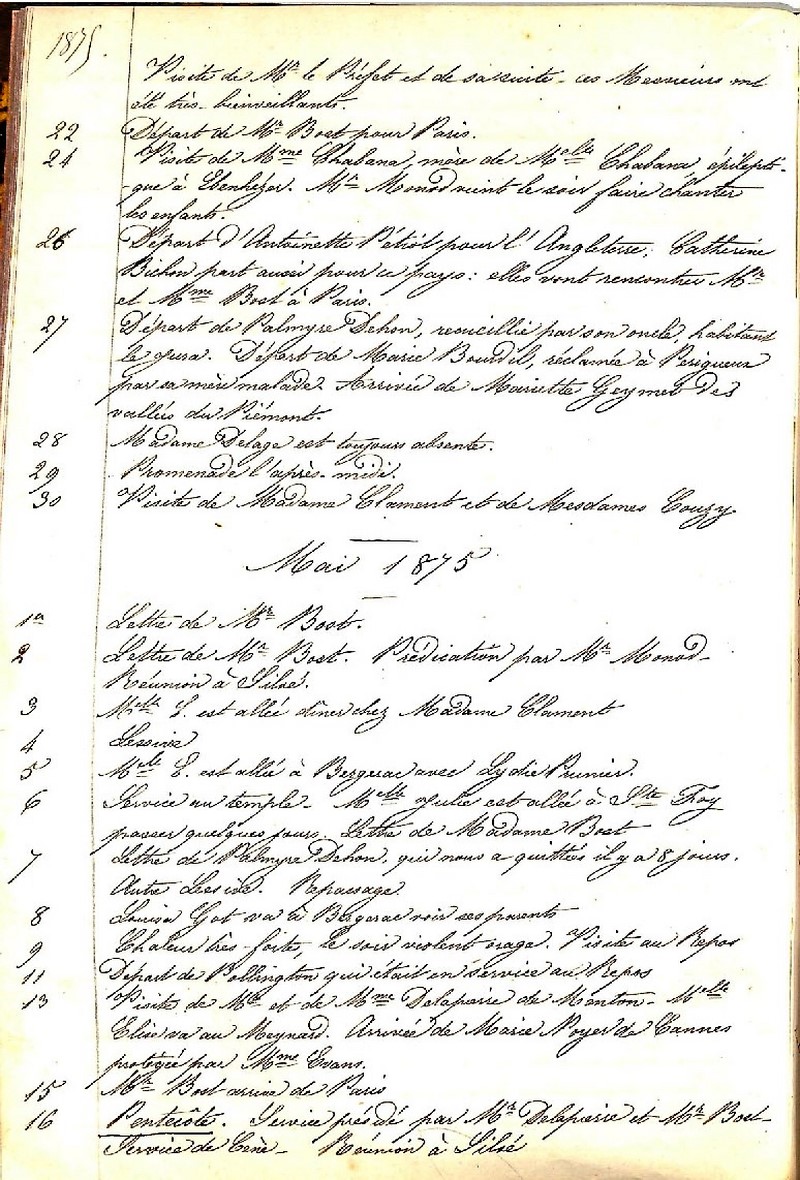 1875.
Visite de Mr le Préfet et de sa suite - ces Messieurs ont
été très-bienveillants.
22 Départ de Mr Bost pour Paris.
24 Visite de Mme Chabana, mère de Melle Chabana épilepti-
-que à Ebenhézer. Mr Monod vient le soir faire chanter
les enfants.
26 Départ d'Antoinette Pétiot pour l'Angleterre; Catherine
Bichon part aussi pour ce pays: elles vont rencontrer Mr
et Mme Bost à Paris.
27 Départ de Palmyre Dehon, recueillie par son oncle, habitant
le Jura. Départ de Marie Bourdil, réclamée à Perigueux
par sa mère malade. Arrivée de Mariette Geymet des
vallées du Piémont.
28 Madame Delage est toujours absente.
29 Promenade l'après-midi.
30 Visite de Madame Clament et de Mesdames Couzy.
Mai 1875
1er Lettre de Mr Bost.
2 Lettre de Mr Bost. Prédication par Mr Monod-
Réunion à Siloé.
3 Melle E. est allée dîner chez Madame Clament
4 Lessive
5 Melle E. est allée à Bergerac avec Lydie Prunier.
6 Service au temple - Melle Julie est allée à Ste Foy
passer quelques jours. Lettre de Madame Bost
7 Lettre de Palmyre Dehon, qui nous a quittés il y a 8 jours.
Autre Lessive. Repassage.
8 Louisa Got va à Bergerac voir ses parents
9 Chaleur très-forte, le soir violent orage. Visite au Repos
11 Départ de Bollington qui était en service au Repos
13 Visite de Mr et de Mme Delapierre de Menton - Melle
Elise va au Meynard. Arrivée de Marie Noyer de Cannes
protégée par Mme Evans.
15 Mr Bost arrive de Paris
16 Pentecôte. Service présidé par Mr Delapierre et Mr Bost-
Service de Cène - Réunion à Siloé